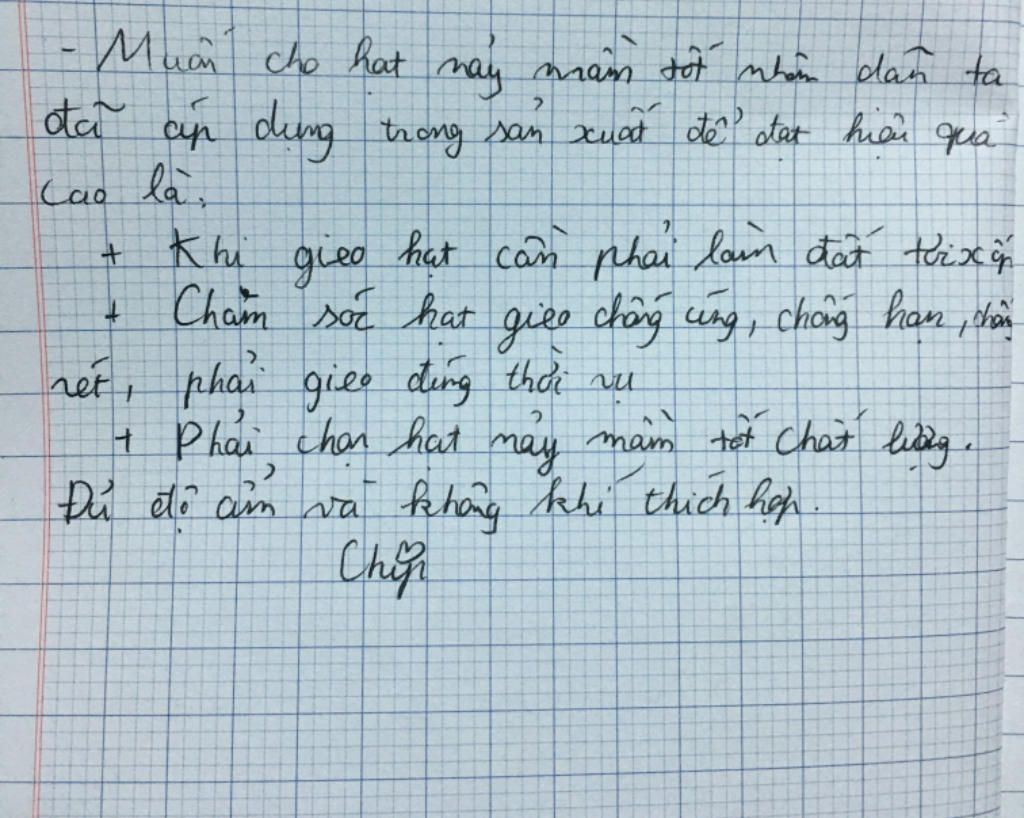 - Muốn cho hạt nảy mầm tốt nhân dân ta
đã áp dụng trong sản xuất để đạt hiệu quả
cao là:
+ Khi gieo hạt cần phải làm đất tơi xốp
+ Chăm sóc hạt gieo chống úng, chống hạn, chống
rét, phải gieo đúng thời vụ
+ Phải chọn hạt nảy mầm tốt chất lượng.
Đủ độ ẩm và không khí thích hợp.